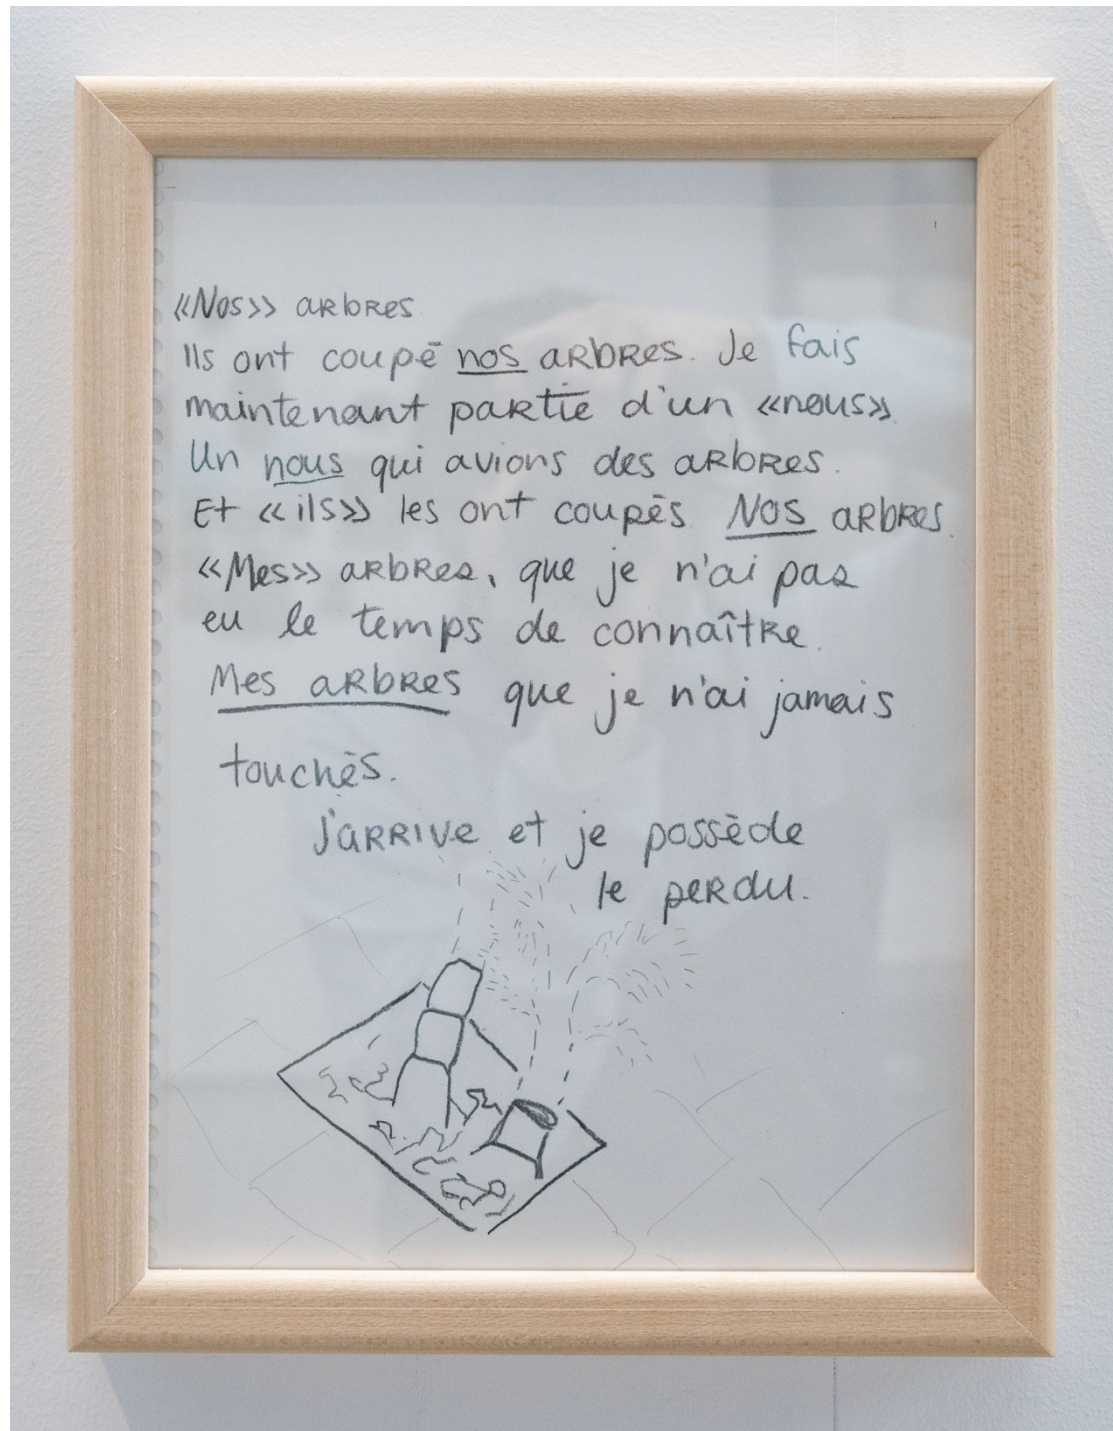 «Nos» arbres
Ils ont coupé nos arbres. Je fais
maintenant partie d'un «nous».
Un nous qui avions des arbres.
Et «ils» les ont coupés Nos arbres.
«Mes» arbres, que je n'ai pas
eu le temps de connaître.
Mes arbres que je n'ai jamais
touchés.
J'arrive et je possède
le perdu.